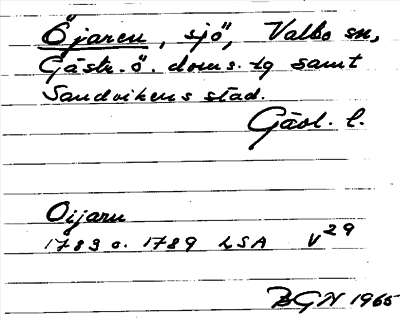 Öjaren, sjö, Valbo sn,
Gästr. ö. doms. tg samt
Sandvikens stad.
Gävl. l.
Oijaru
1783 o. 1789 LSA V29
BGN 1965